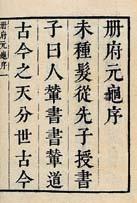 册府元龜序
未種髮從先子授書
子曰人輦書書輦道
古今之天分世古今
册府元龜序